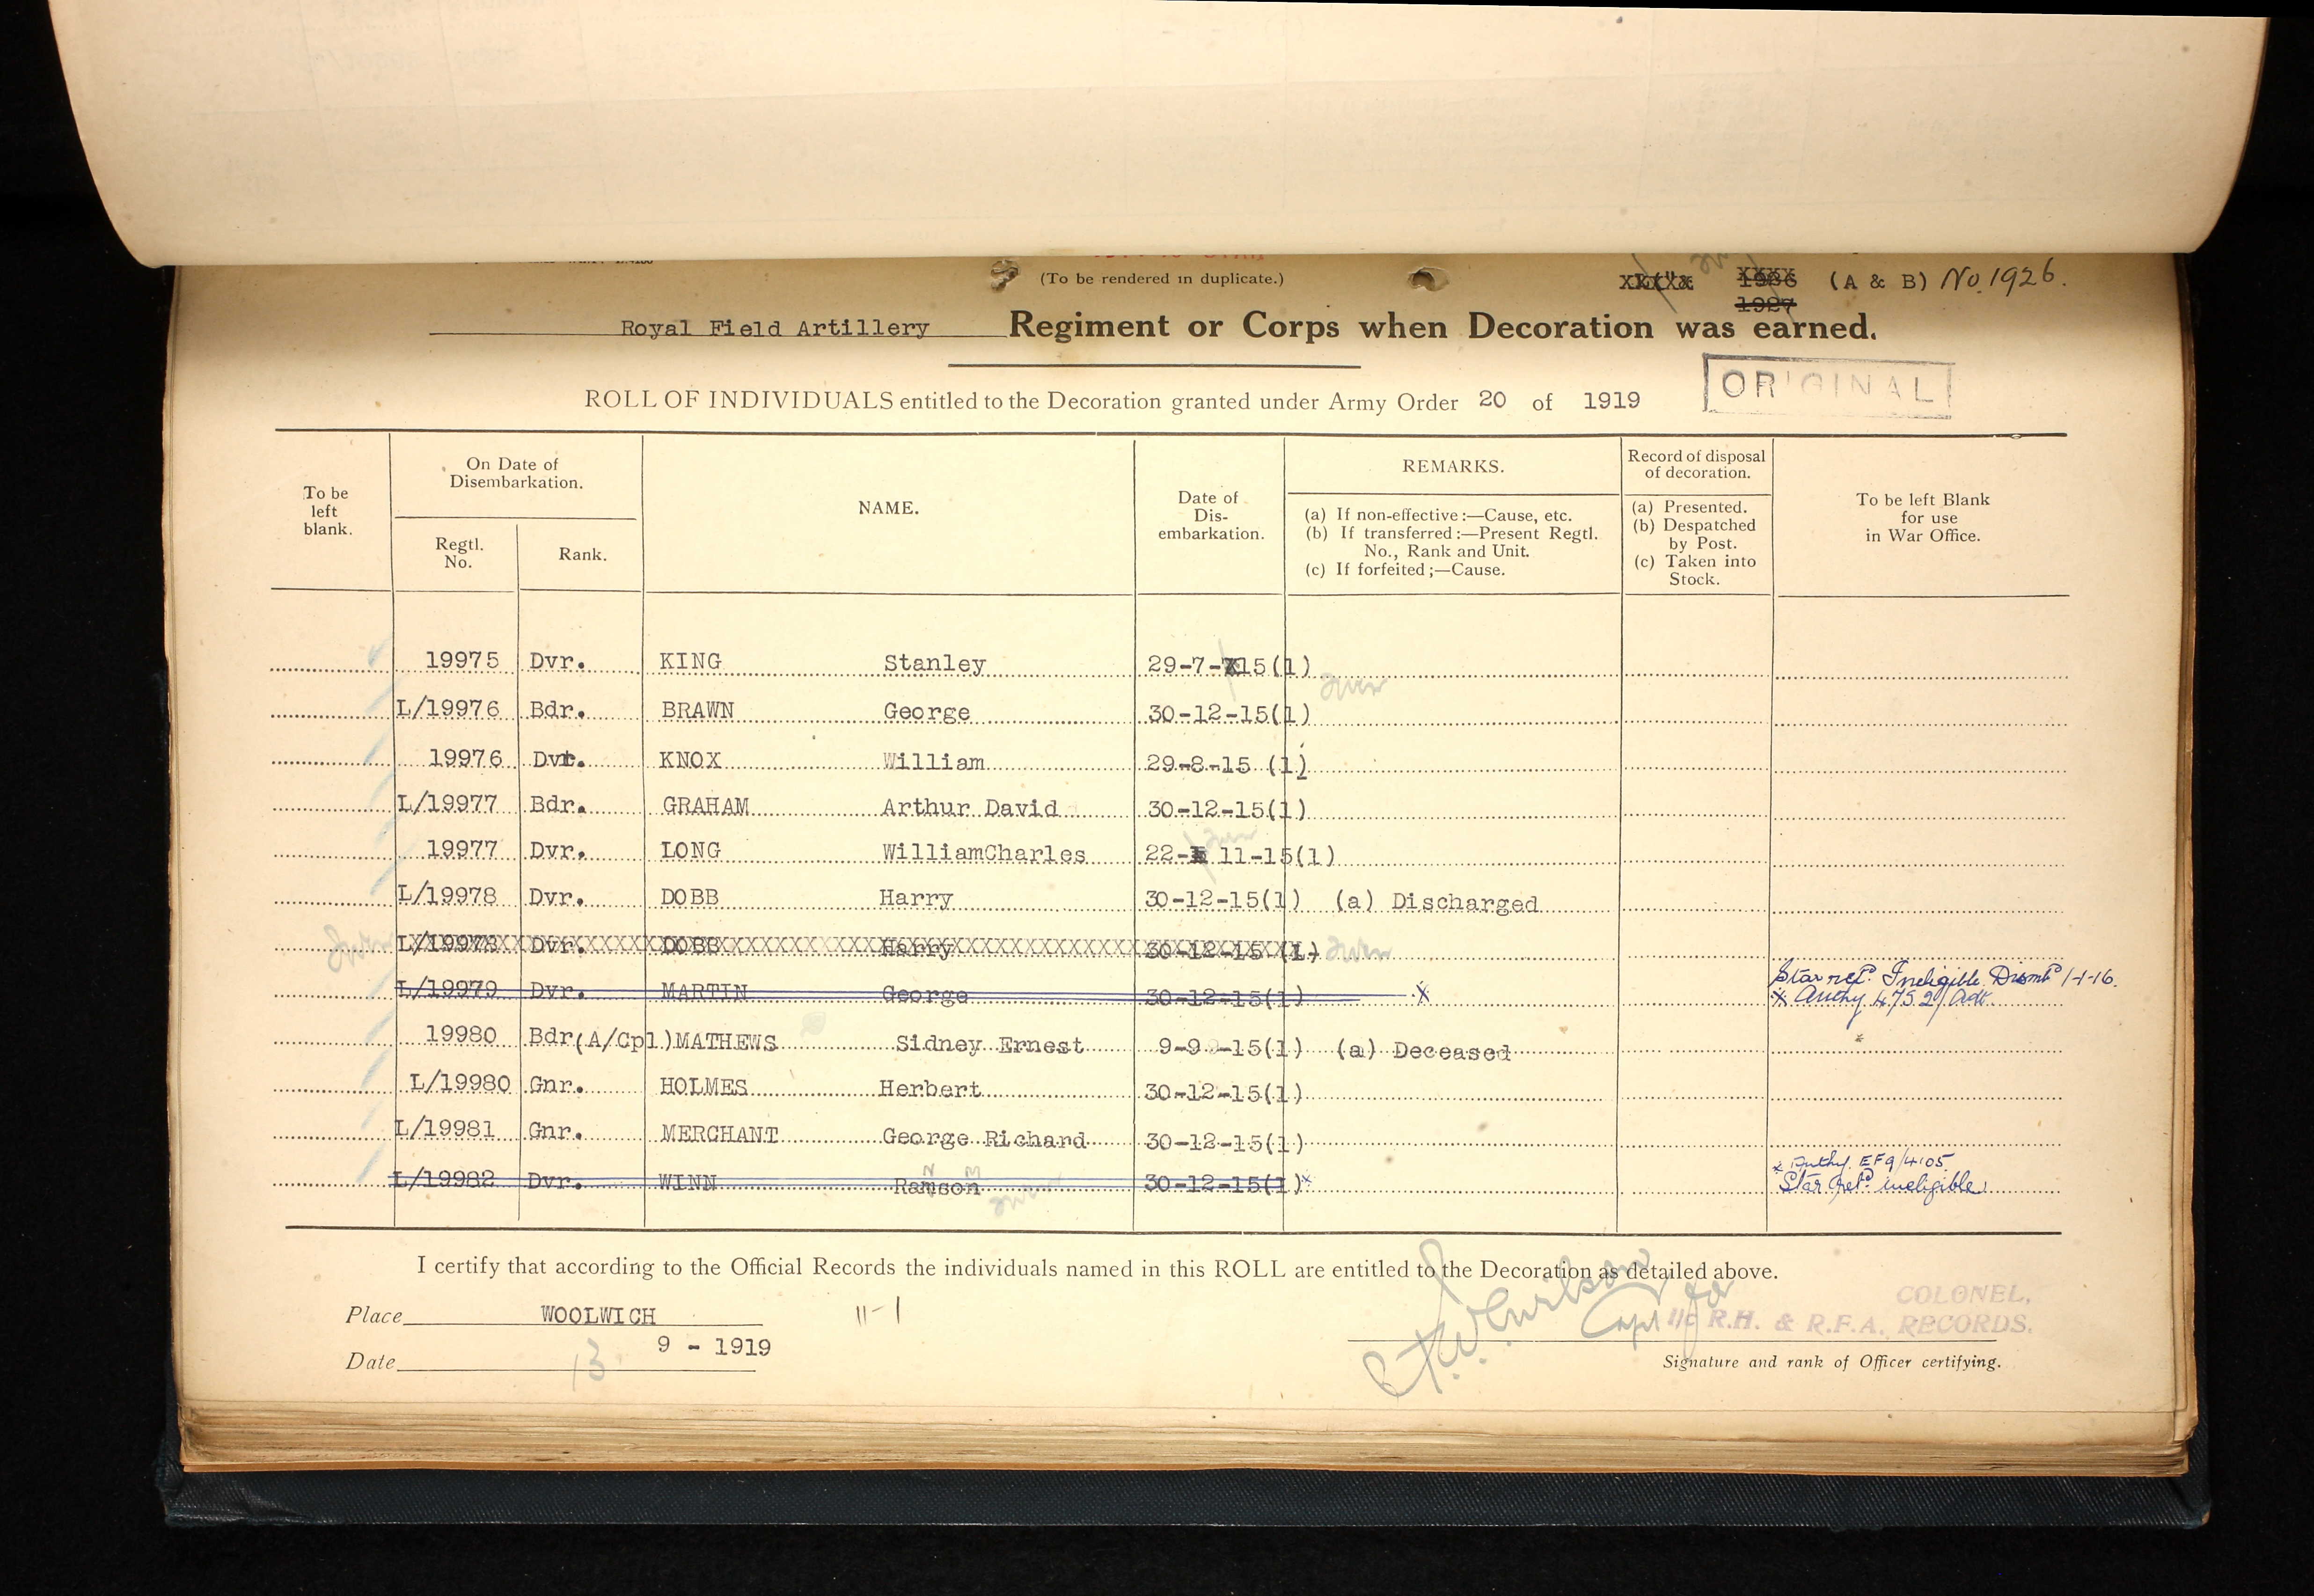 (To be rendered in duplicate.)
1926 (A & B) No. 1926.
1927
Royal Field Artillery Regiment or Corps when Decoration was earned.
ORIGINAL
ROLL OF INDIVIDUALS entitled to the Decoration granted under Army Order 20 of 1919
To be left blank.
On Date of Disembarkation.
Regtl. No.
Rank.
NAME.
Date of Dis-embarkation.
REMARKS.
(a) If non-effective:—Cause, etc.
(b) If transferred:—Present Regtl. No., Rank and Unit.
(c) If forfeited;—Cause.
Record of disposal of decoration.
(a) Presented.
(b) Despatched by Post.
(c) Taken into Stock.
To be left Blank for use in War Office.
19975 Dvr. KING Stanley 29-7-15(1)
L/19976 Bdr. BRAWN George 30-12-15(1)
19976 Dvr. KNOX William 29-8-15 (1)
L/19977 Bdr. GRAHAM Arthur David 30-12-15(1)
19977 Dvr. LONG WilliamCharles 22- 11-15(1)
L/19978 Dvr. DOBB Harry 30-12-15(1) (a) Discharged
L/19978 Dvr. DOBB Harry 30-12-15 (1)
L/19979 Dvr. MARTIN George 30-12-15(1) X Star retd. Ineligible Disembd 1-1-16.
X Authy 4752/Adt.
19980 Bdr(A/Cpl)MATHEWS Sidney Ernest 9-9-15(1) (a) Deceased
L/19980 Gnr. HOLMES Herbert 30-12-15(1)
L/19981 Gnr. MERCHANT George Richard 30-12-15(1)
N M x Authy. EF9/4105
L/19982 Dvr. WINN Ramson 30-12-15(1)x Star Retd. ineligible
I certify that according to the Official Records the individuals named in this ROLL are entitled to the Decoration as detailed above.
Place WOOLWICH 11-1
Date 13 9 - 1919
Wilson Capt for
COLONEL,
I/c R.H. & R.F.A. RECORDS.
Signature and rank of Officer certifying.